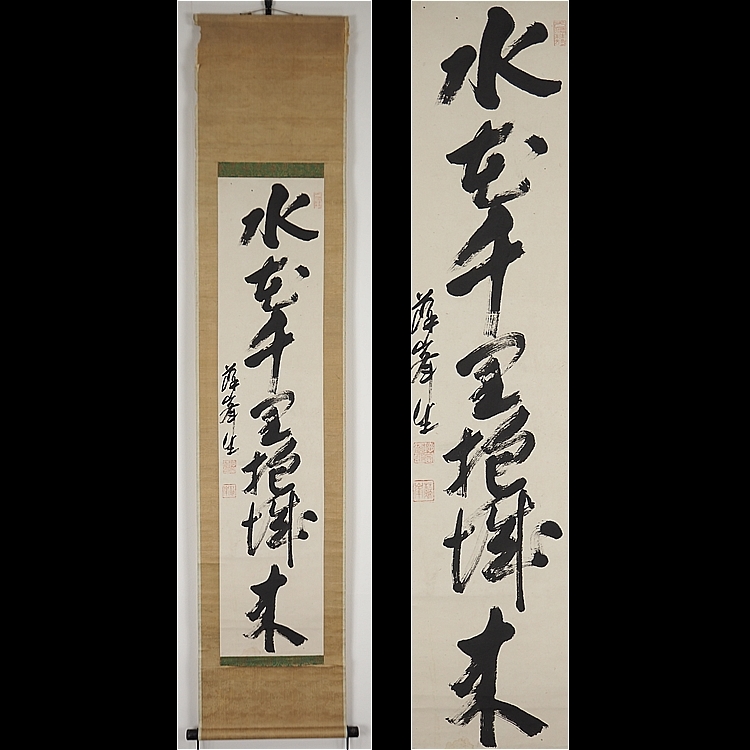 水千里抱城来
蘇峯生
水千里抱城来
蘇峯生